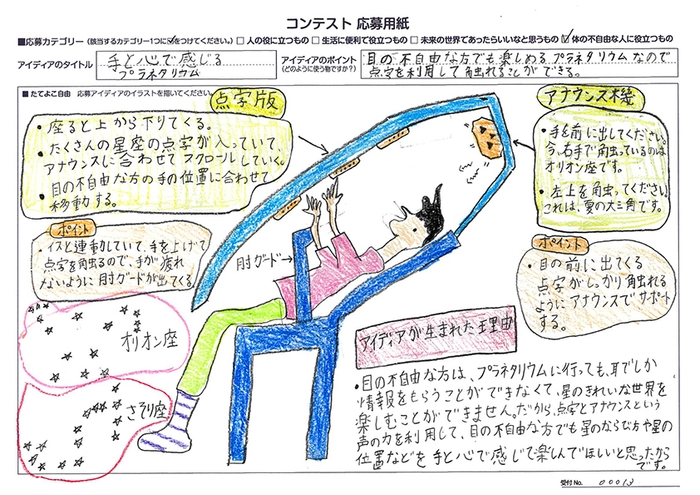 コンテスト 応募用紙
■応募カテゴリー（該当するカテゴリー1つに☑をつけてください。） □ 人の役に立つもの □ 生活に便利で役立つもの □ 未来の世界であったらいいなと思うもの ☑ 体の不自由な人に役立つもの
アイディアのタイトル
手と心で感じる
プラネタリウム
アイディアのポイント
（どのように使う物ですか？）
目の不自由な方でも楽しめるプラネタリウムなので
点字を利用して触れることができる。
■たてよこ自由 応募アイディアのイラストを描いてください。
点字版
・座ると上から下りてくる。
・たくさんの星座の点字が入っていて、
アナウンスに合わせてスクロールしていく。
・目の不自由な方の手の位置に合わせて
移動する。
ポイント
・イスと連動していて、手を上げて
点字を触るので、手が疲れ
ないように肘ガードが出てくる
肘ガード→
オリオン座
さそり座
アナウンス機
・手を前に出してください。
今、右手で触っているのは
オリオン座です。
・左上を触ってください。
これは、夏の大三角です。
ポイント
・目の前に出てくる
点字がしっかり触れる
ようにアナウンスでサポート
する。
アイディアが生まれた理由
・目の不自由な方は、プラネタリウムに行っても、耳でしか
情報をもらうことができなくて、星のきれいな世界を
楽しむことができません。だから、点字とアナウンスという
声の力を利用して、目の不自由な方でも星のならび方や星の
位置などを手と心で感じて楽しんでほしいと思ったから
です。
受付No. 00013